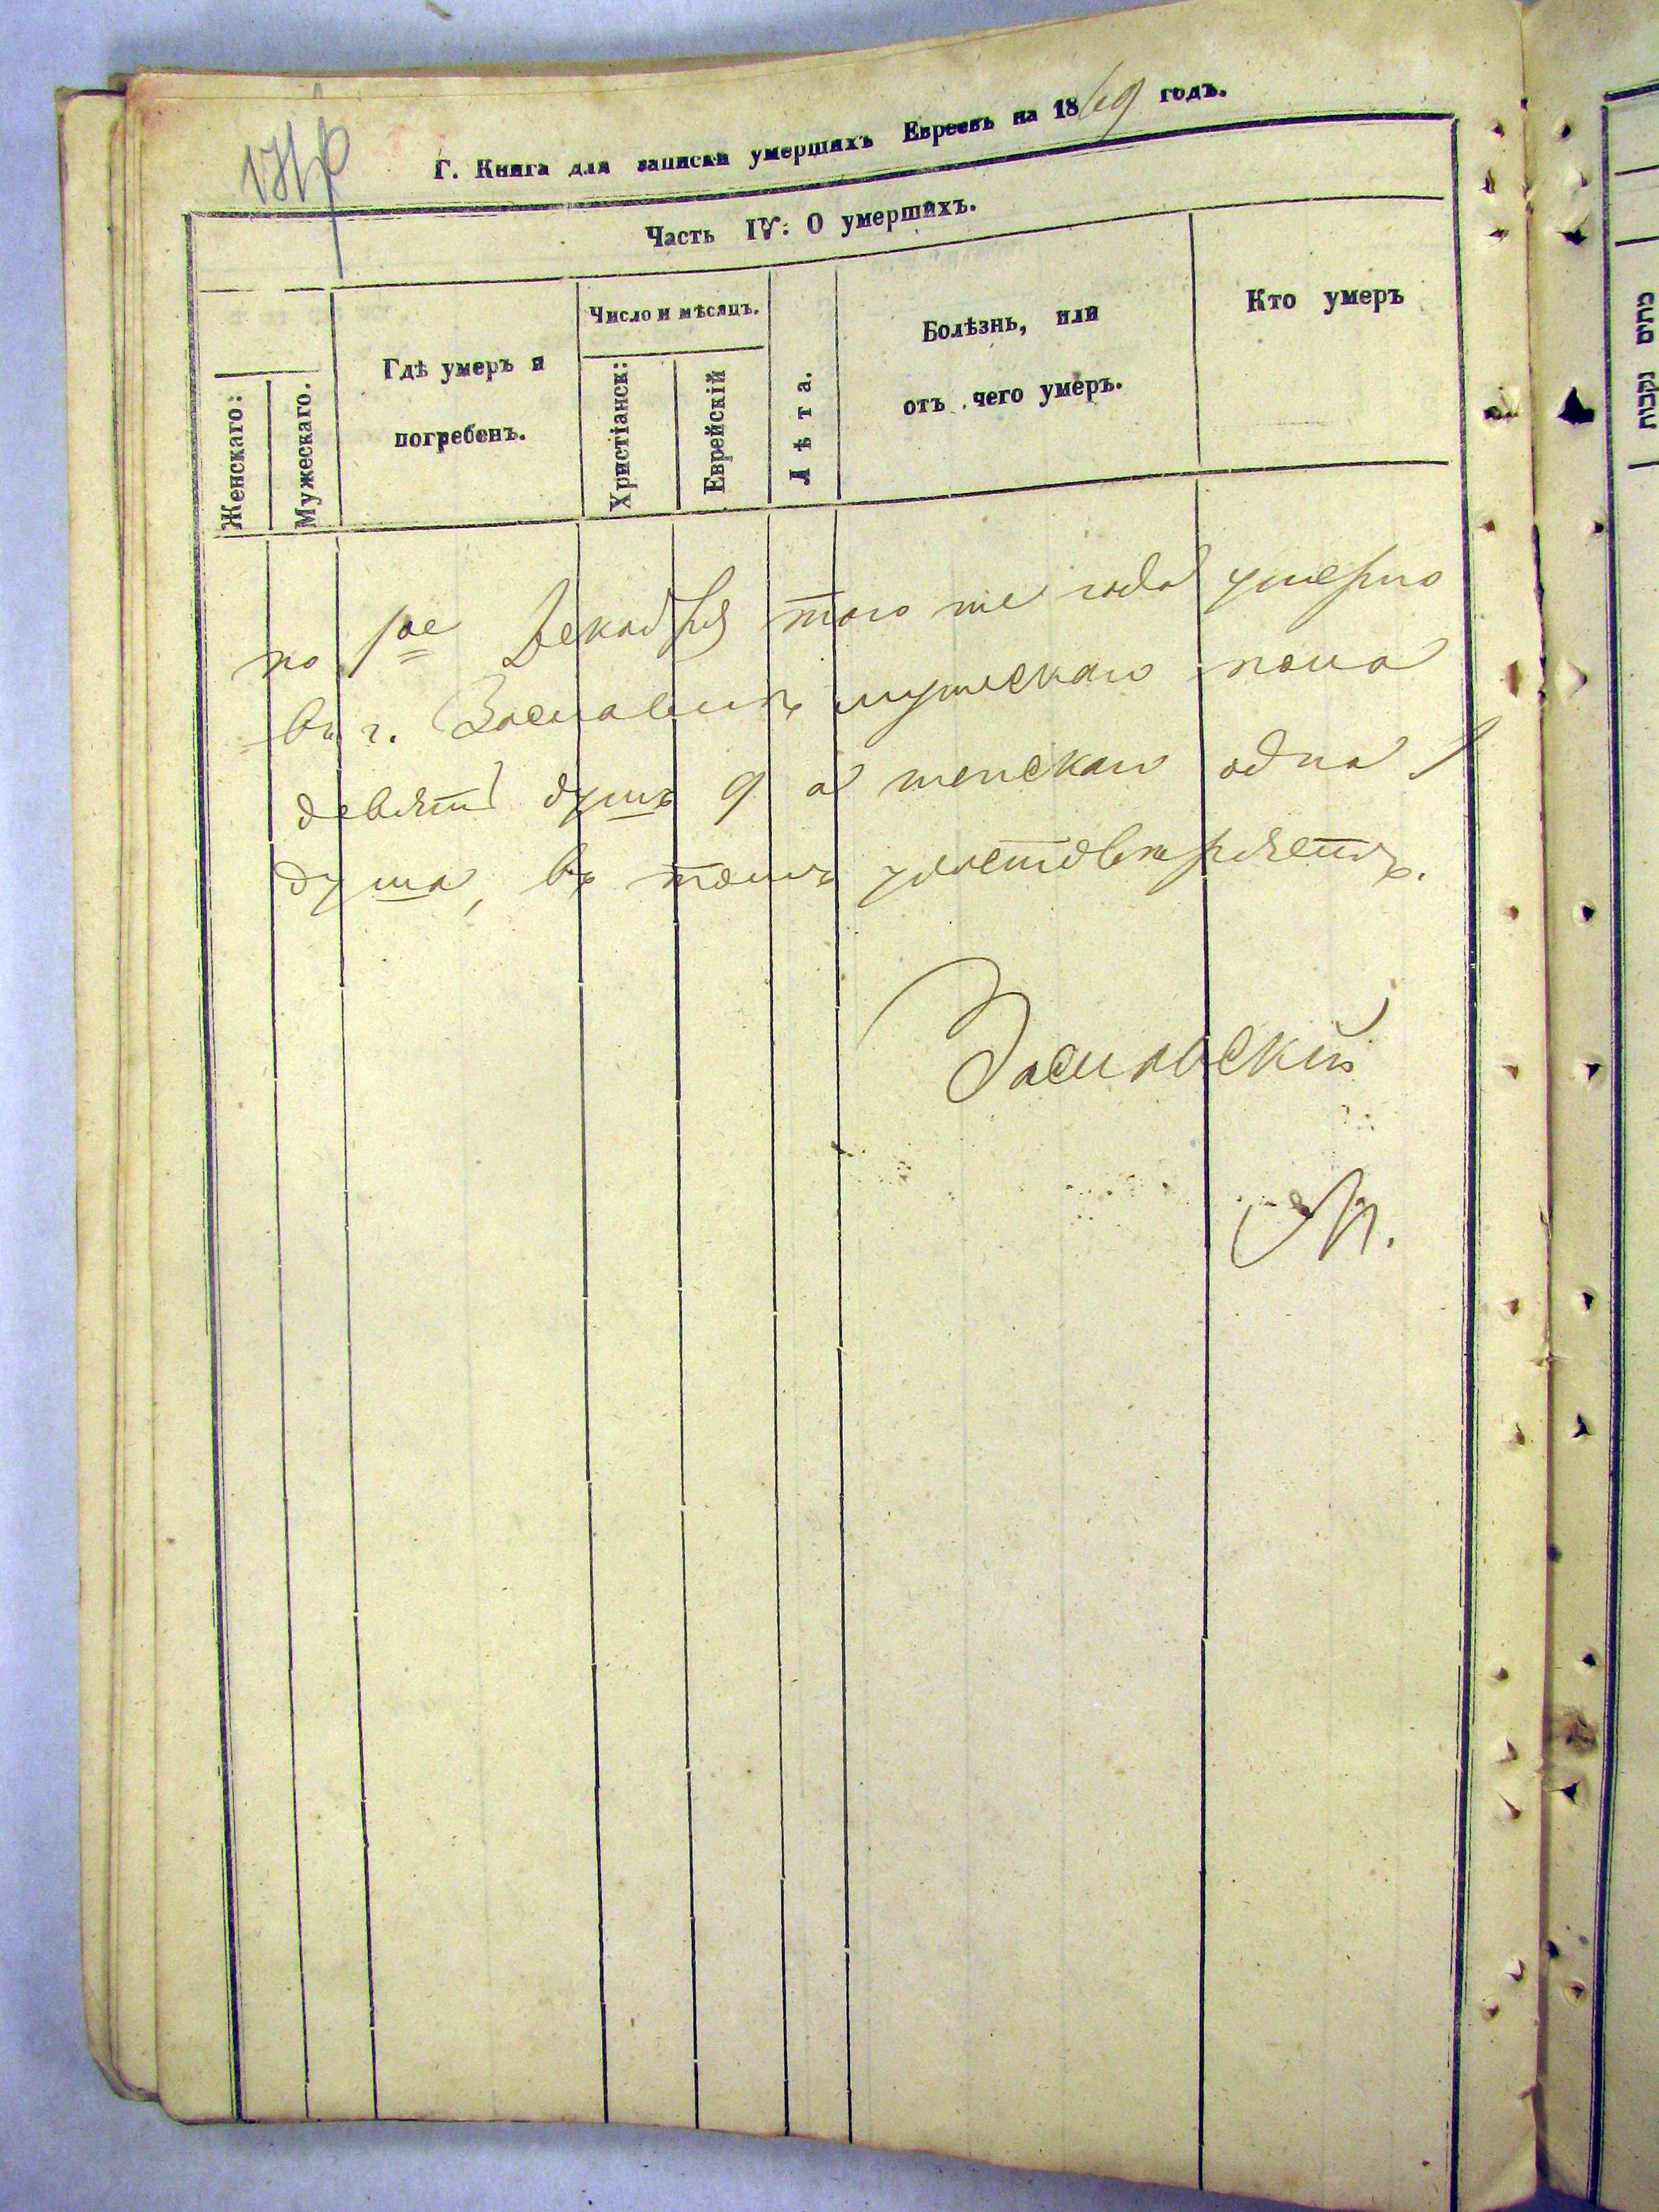 Г. Книга для записки умершихъ Евреевъ на 1869 годъ.
Часть IV: О умершихъ.
Женскаго:
Мужескаго.
Гдѣ умеръ и
погребенъ.
Число и мѣсяцъ.
Христіанск:
Еврейскій
Лѣта.
Болѣзнь, или
отъ чего умеръ.
Кто умеръ
по 1ое Декабря того же года умерло
въ г. Заславлѣ мужескаго пола
девять душъ 9 а женскаго одна 1
душа, въ томъ удостовѣряетъ.
מתים נקבות